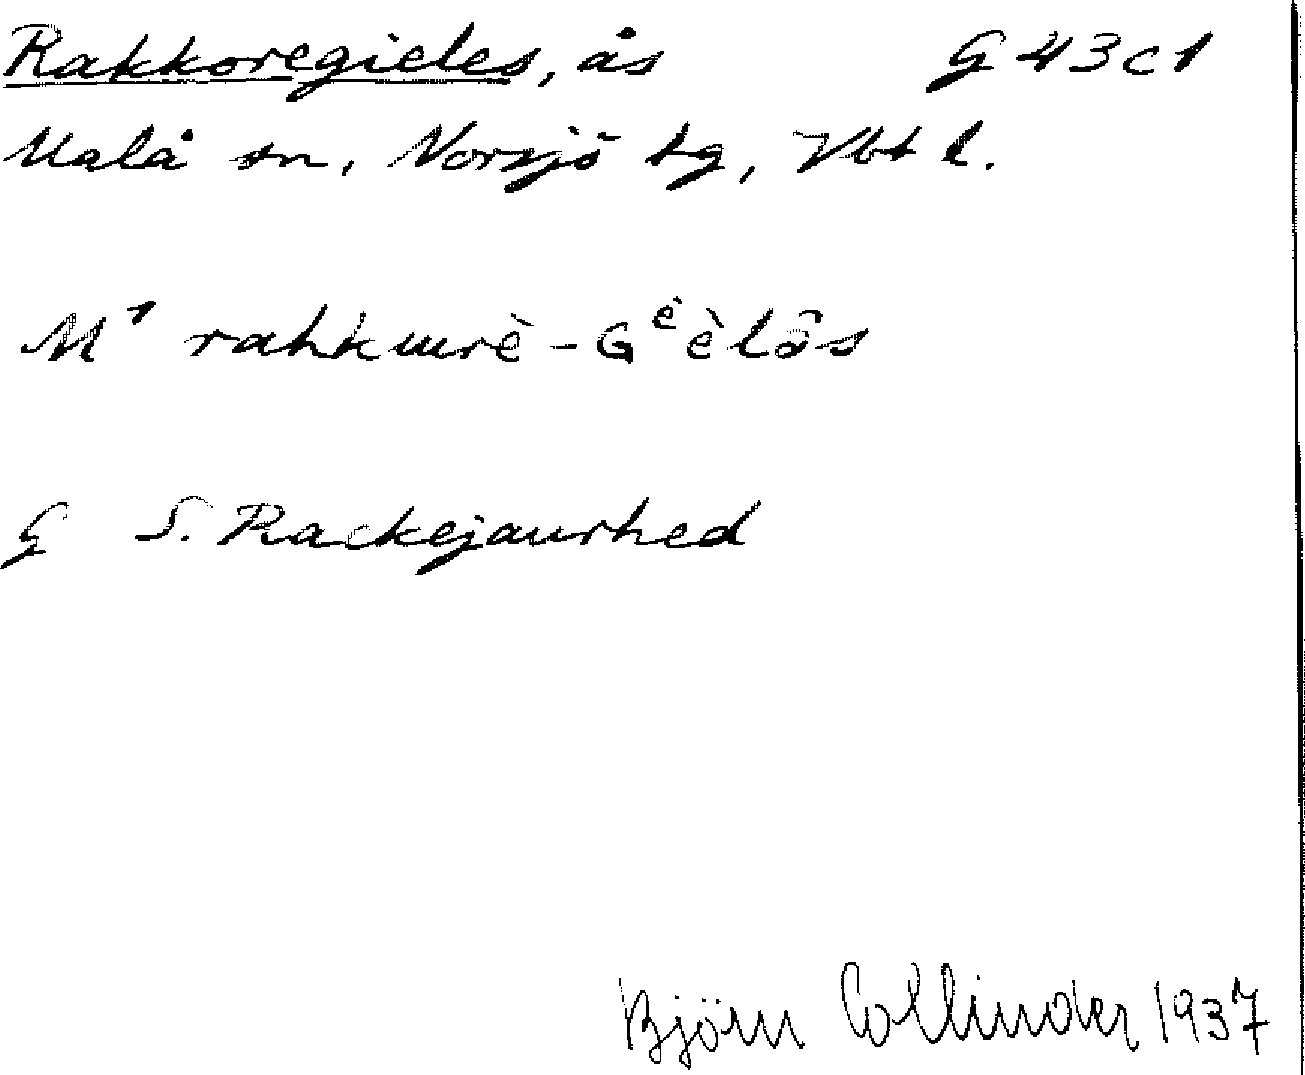 Rakkoregieles, ås G 43 c 1
Malå sn, Norsjö tg, Vbt l.
M¹ rahkɯrè-Gᵉ̀èlâ̄s
G S. Rackejaurhed
Björn Collinder 1937